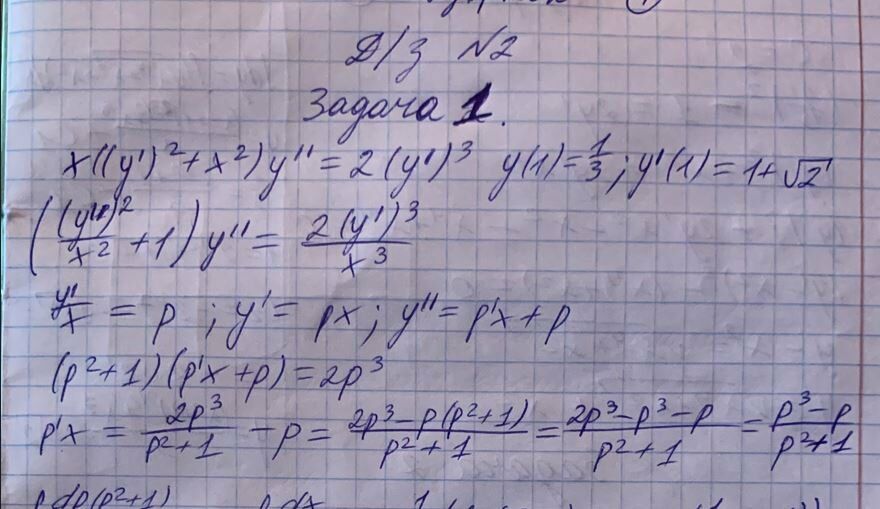 Д/з №2
Задача 1.
x((y')²+x²)y''=2(y')³ y(1)=1/3; y'(1)=1+√2
((y')²/x²+1)y''=2(y')³/x³
y'/x=p; y'=px; y''=p'x+p
(p²+1)(p'x+p)=2p³
p'x=2p³/(p²+1)-p=(2p³-p(p²+1))/(p²+1)=(2p³-p³-p)/(p²+1)=(p³-p)/(p²+1)
dp(p²+1) dx